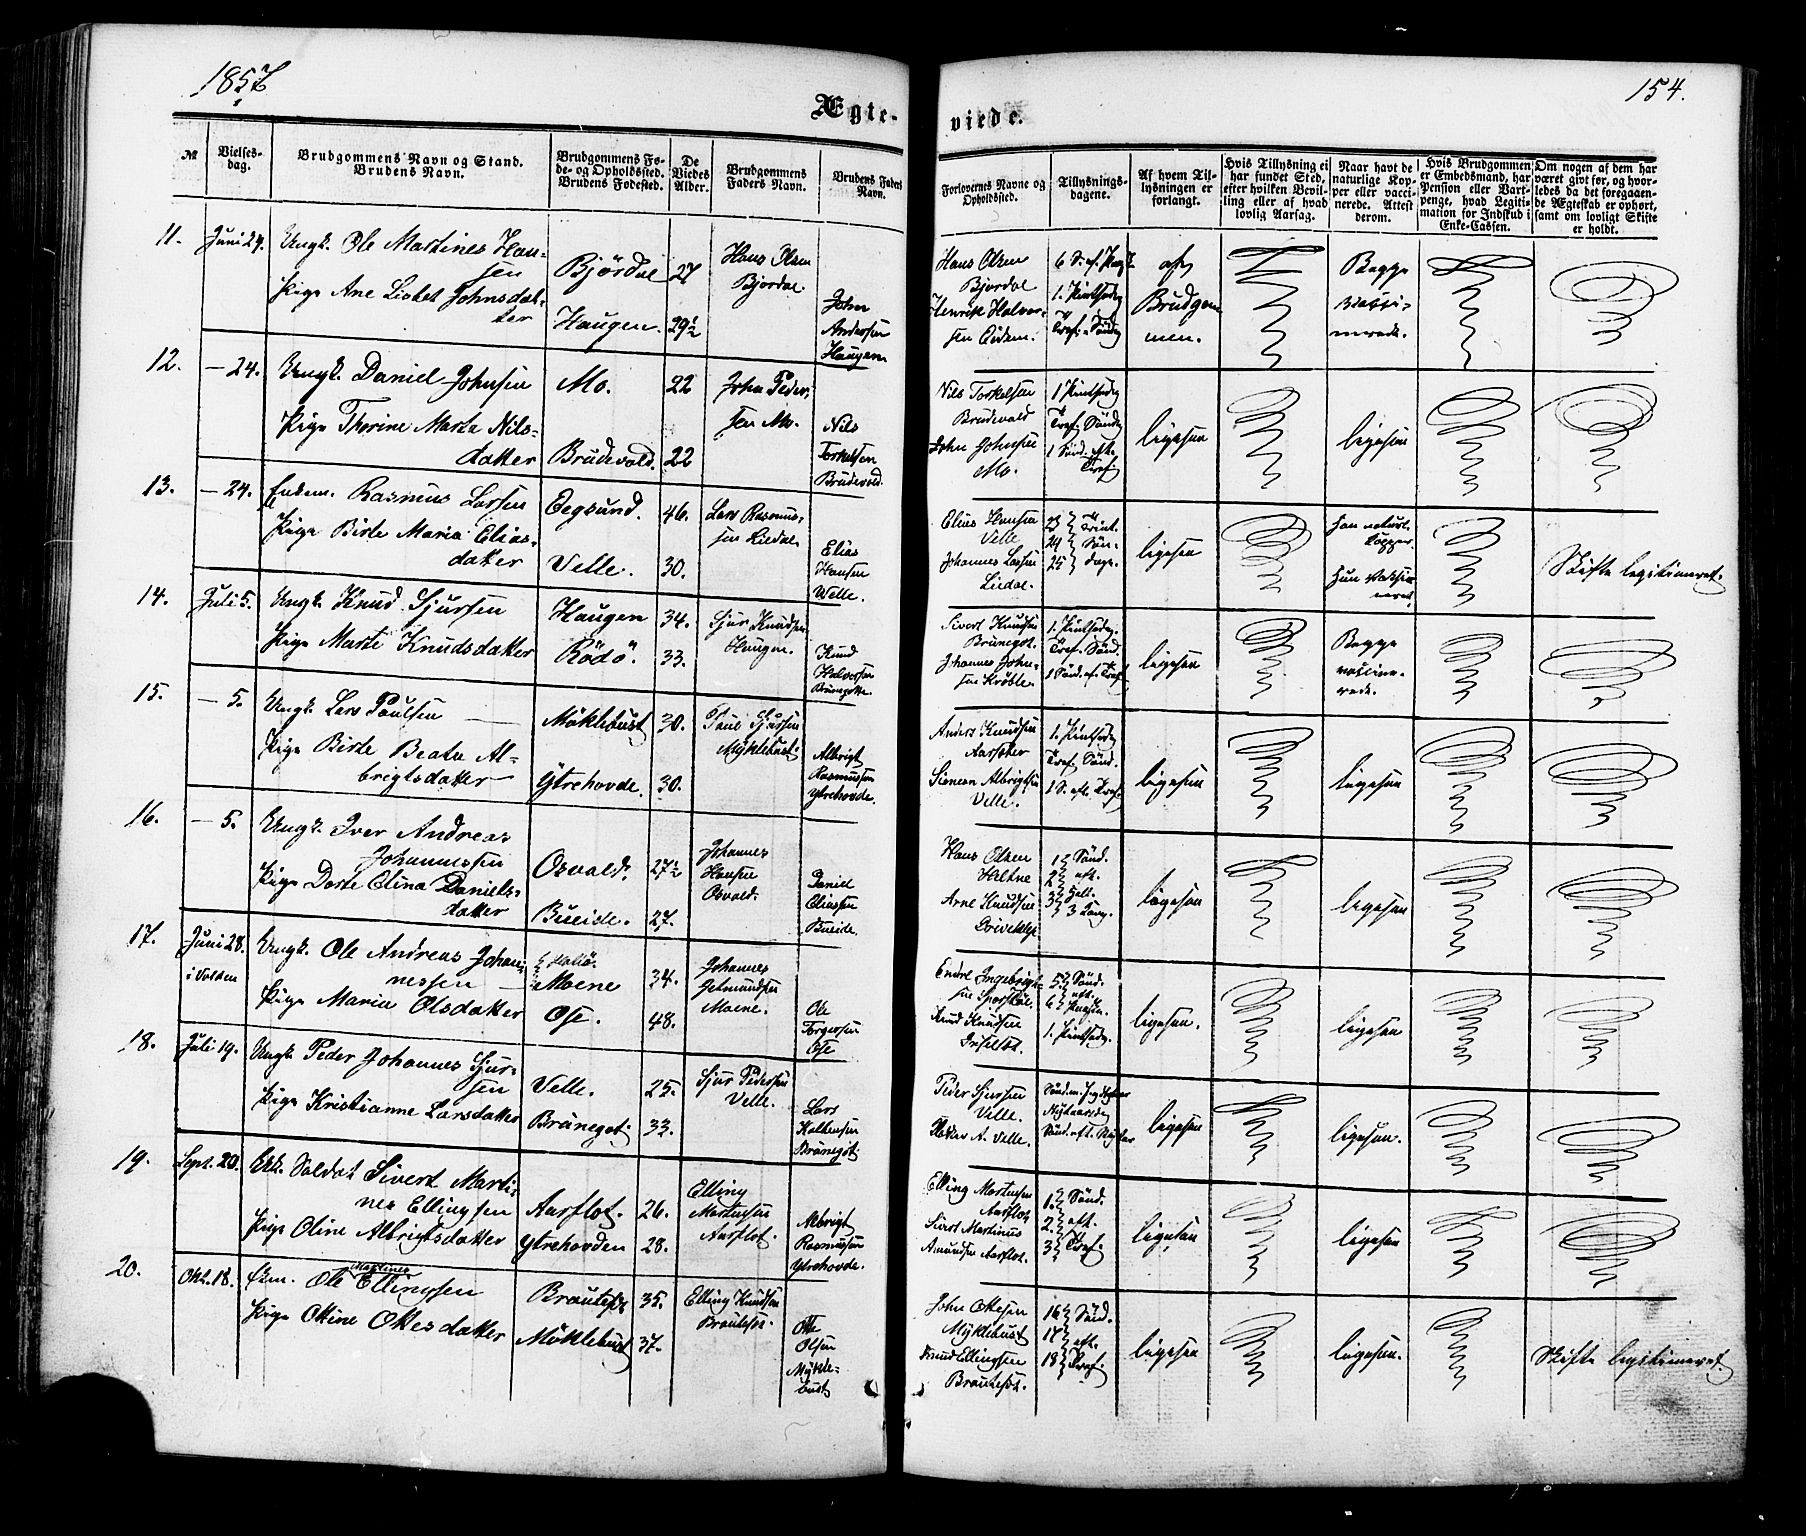 1857
154.
Ægte-
viede.
№
Vielses-
dag.
Brudgommens Navn og Stand.
Brudens Navn.
Brudgommens Fø-
de- og Opholdssted.
Brudens Fødested.
De
Viedes
Alder.
Brudgommens
Faders Navn.
Brudens Faders
Navn.
Forlovernes Navne og
Opholdssted.
Tillysnings-
dagene.
Af hvem Til-
lysningen er
forlangt.
Hvis Tillysning ei
har fundet Sted,
efter hvilken Bevil-
ling eller af hvad
lovlig Aarsag.
Naar havt de
naturlige Kop-
per eller vacci-
nerede. Attest
derom.
Hvis Brudgommen
er Embedsmand, har
Pension eller Vart-
penge, hvad Legiti-
mation for Indskud i
Enke-Cassen.
Om nogen af dem har
været gift før, og hvor-
ledes da det foregaaen-
de Ægteskab er ophørt,
samt om lovligt Skifte
er holdt.
11.
Juni 24.
Ungk. Ole Martines Han-
sen
Pige Ane Lisbet Johnsdat-
ter
Bjørdal
Haugen
27
29½
Hans Olsen
Bjørdal
John
Andersen
Haugen
Hans Olsen
Bjørdal
Henrik Halvor-
sen Eidem.
1. Pintsedag
Tref. Søndag
af
Brudgom
men.
Begge
vacci-
nerede.
12.
— 24.
Ungk. Daniel Johnsen
Pige Thorine Marta Nils-
datter
Mo.
Brudevold.
22
22
John Peder-
sen Mo.
Nils
Torkelsen
Brudevold.
Nils Torkelsen
Brudevold
John Johnsen
Mo.
1 Pintsedag
Tref. Søndag
1 Sønd. eft.
Tref.
ligesaa
ligesaa
13.
— 24.
Enkem. Rasmus Larsen
Pige Birte Maria Elias-
datter
Eegsund.
Velle.
46.
30.
Lars Rasmus-
sen Lievdal
Elias
Hansen
Welle.
Elias Hansen
Velle
Johannes Larsen
Liedal.
23 } Trint.
24 } Søn-
25 } dage.
ligesaa
Han naturl.
Kopper.
Hun vacci-
neret.
Skifte legitimeret.
14.
Juli 5.
Ungk. Knud Sjursen
Pige Marte Knudsdatter
Haugen
Rödö.
34.
33.
Sjur Knudsen
Haugen.
Knud
Halvorsen
Sivert Knudsen
Brünegot.
Johannes John-
sen Krøble.
1. Pintsedag.
Tref. Sønd.
1 Sønd. eft. Tref.
ligesaa
Begge
vaccine-
rede.
15.
— 5.
Ungk. Lars Paulsen
Pige Birte Beata Al-
brigtsdatter
Mÿklebust
Ytrehovde.
30.
30.
Paul Sjursen
Mÿklebust.
Albrigt
Rasmussen
Ytrehovde.
Anders Knudsen
Aarseter
Simeon Albrigtsen
Velle.
1. Pintsedag
Tref. Sønd.
1 S. eft. Tref.
ligesaa
ligesaa
16.
— 5.
Ungk. Iver Andreas
Johannessen
Pige Dorte Olina Daniels-
datter
Osvold.
Bueide.
27½
27.
Johannes
Hansen
Osvold.
Daniel
Eliassen
Bueide.
Hans Olsen
Hattne
Arne Knudsen
1 } Sønd.
2 } eft.
3 } Hell.
3 Kong.
ligesaa
ligesaa
17.
Juni 28.
i Volden
Ungk. Ole Andreas Johan-
nessen
Pige Maria Olsdatter
Moene
Ose.
34.
48.
Johannes
Moene.
Ole
Torgersen
Ose
Endre Ingebrigt-
sen
Knud Knudsen
5 } Sønd.
eft.
6 } Paasken.
1. Pintsedag.
ligesaa.
ligesaa
18.
Juli 19.
Ungk. Peder Johannes Sjur-
sen
Pige Kristianne Larsdatter
Velle.
Brünegot.
25.
33.
Sjur Pedersen
Velle.
Lars
Brünegot.
Peder Sjursen
Velle.
Peder A. Velle.
Nytaarsdag
Sønd. eft. Nytaar
ligesaa
ligesaa.
19.
Sept. 20.
Ungk. Soldat Sivert Marti-
nes Ellingsen
Pige Oline Albrigtsdatter
Aarflot.
Ytrehovden
26.
28.
Elling
Martinsen
Aarflot.
Albrigt
Rasmussen
Ytrehovde.
Elling Martinsen
Aarflot
Sivert Martinus
Amundsen Aarflot.
1. } Sønd.
2. } eft.
3 } Tref.
ligesaa
ligesaa
20.
Okt. 18.
Ekm. Ole Martines Ellingsen
Pige Oline Ottesdatter
Brautesot
Mÿklebust
35.
37.
Elling Knudsen
Brautesot.
Otte
Olsen
Mÿkle-
bust
John Ottesen
Mÿklebust
Knud Ellingsen
Brautesot.
16 } Sønd.
17 } eft.
18 } Tref.
ligesaa
ligesaa.
Skifte legitimeret.